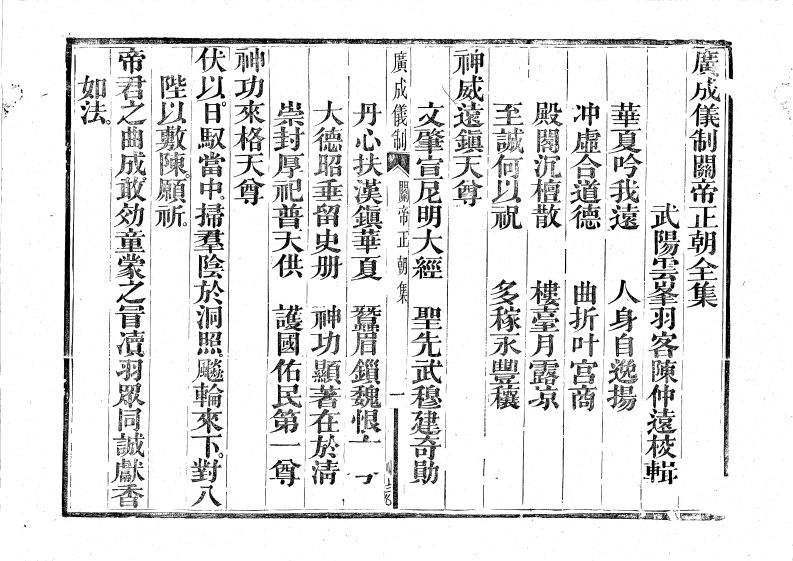 廣成儀制關帝正朝全集
武陽雲峯羽客陳仲遠校輯
華夏吟我遠　人身自逸揚
冲虛合道德　曲折叶宮商
殿閣沉檀散　樓臺月露凉
至誠何以祝　多稼永豐穰
神威遠鎭天尊
文肇宣尼明大經　聖先武穆建奇勛
廣成儀制　關帝正朝集　一
丹心扶漢鎭華夏　蠶眉鎖魏恨
大德昭垂留史册　神功顯著在於淸
崇封厚祀普天供　護國佑民第一尊
神功來格天尊
伏以日馭當中。掃羣陰於洞照。飈輪來下。對八
陛以敷陳。願祈。
帝君之曲成。敢効童蒙之冒凟。羽眾同誠。獻香
如法。